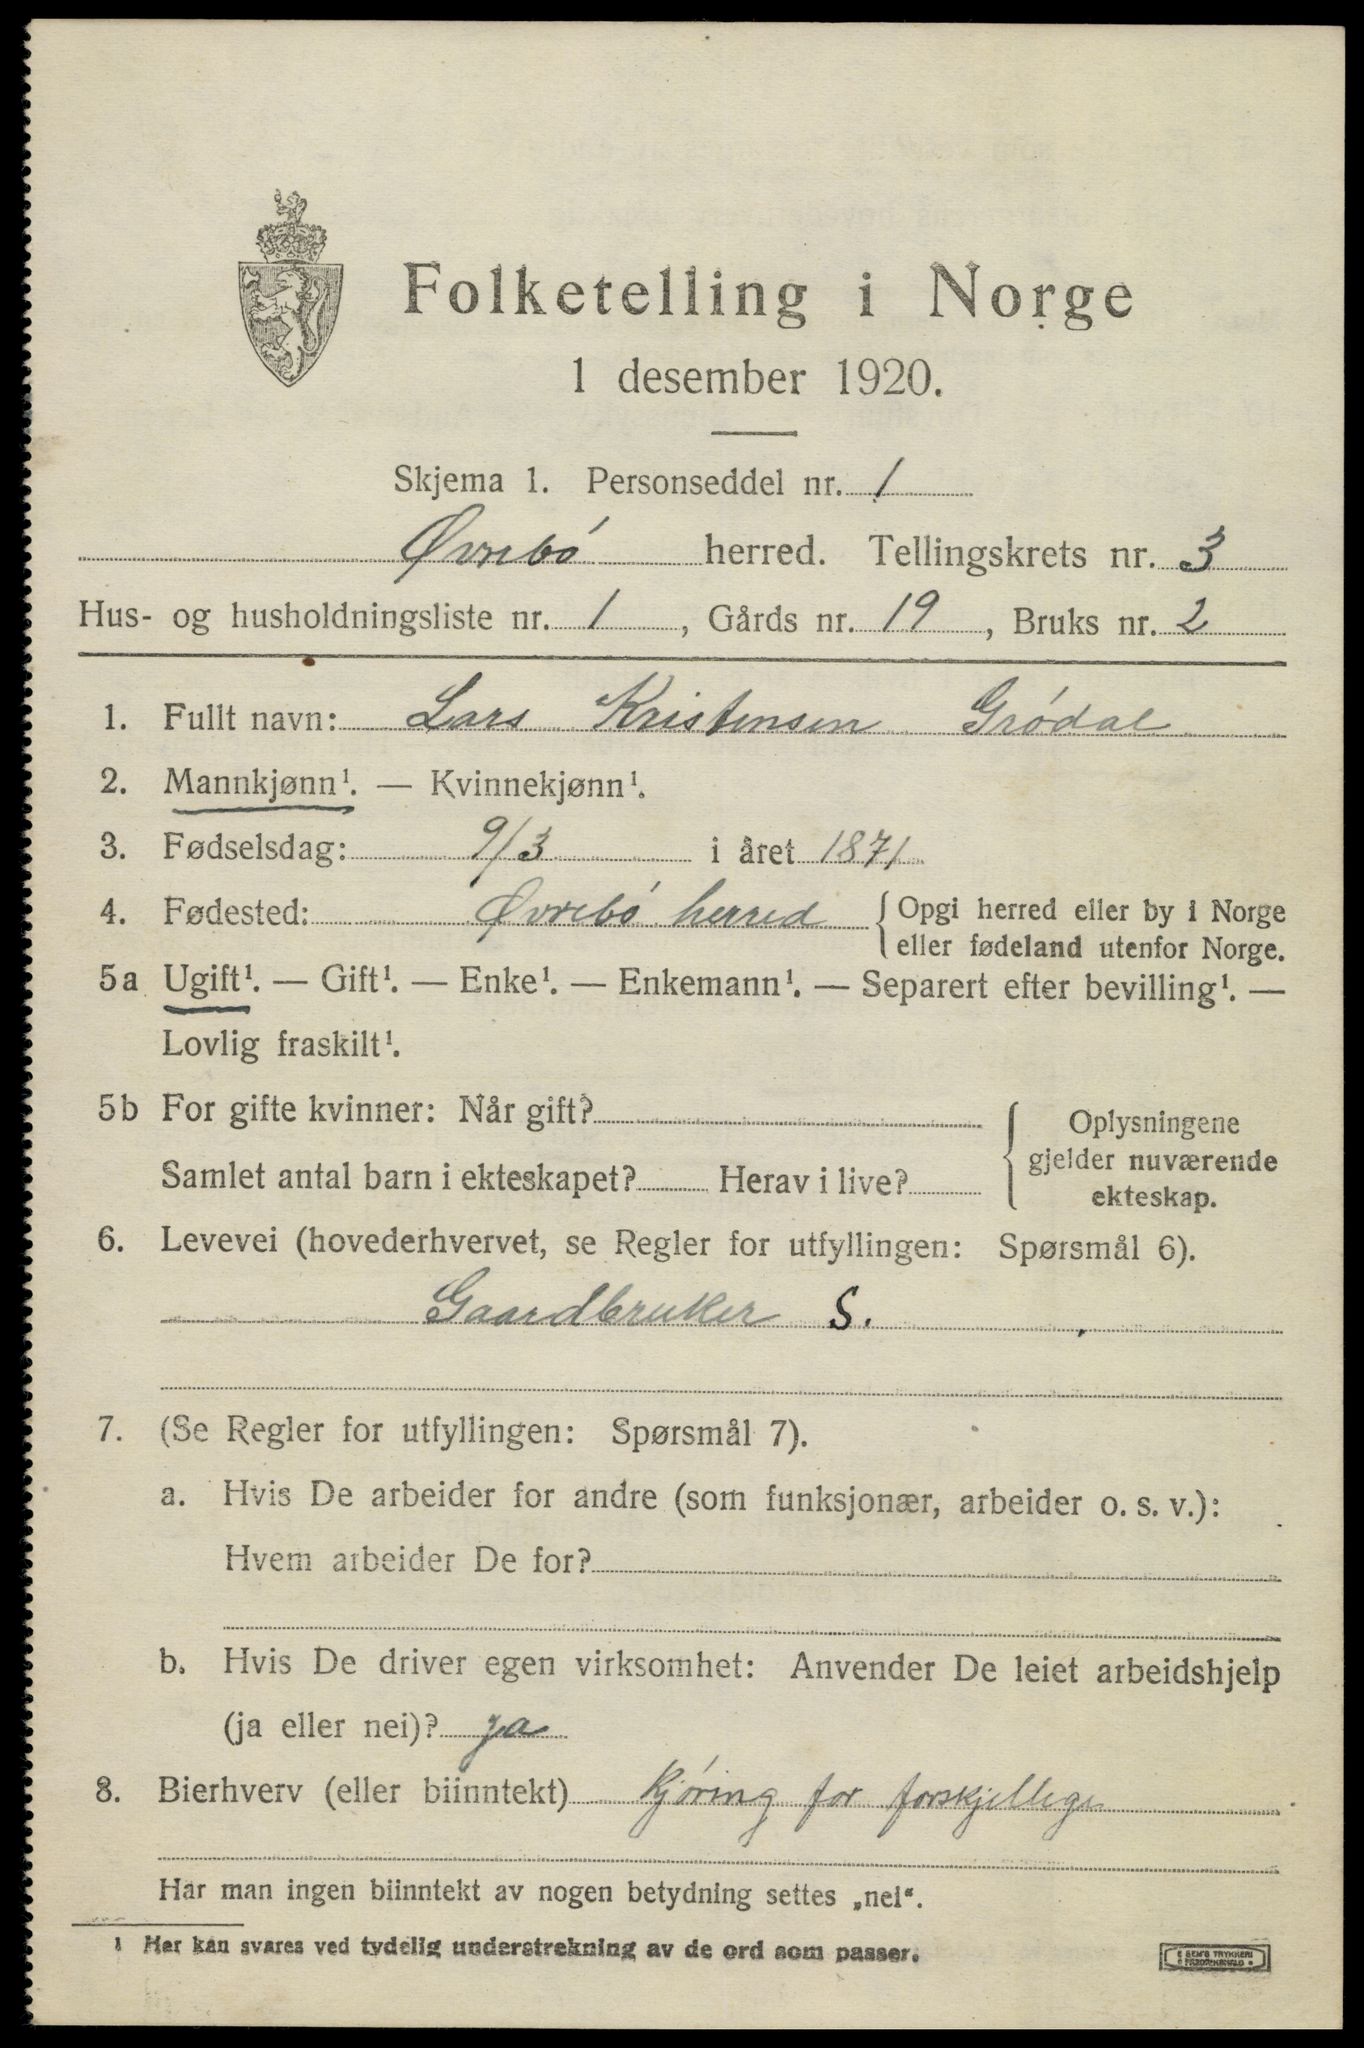 Folketelling i Norge
1 desember 1920.
Skjema 1. Personseddel nr. 1
Øvrebó herred. Tellingskrets nr. 3
Hus- og husholdningsliste nr. 1, Gårds nr. 19, Bruks nr. 2
1. Fullt navn: Lars Kristensen Grödal
2. Mannkjønn¹. — Kvinnekjønn¹.
3. Fødselsdag: 9/3 i året 1871
4. Fødested: Øvrebó herred { Opgi herred eller by i Norge
eller fødeland utenfor Norge.
5a Ugift¹. — Gift¹. — Enke¹. — Enkemann¹. — Separert efter bevilling¹. —
Lovlig fraskilt¹.
5b For gifte kvinner: Når gift?
Samlet antal barn i ekteskapet? Herav i live?
{ Oplysningene
gjelder nuværende
ekteskap.
6. Levevei (hovederhvervet, se Regler for utfyllingen: Spørsmål 6).
Gaardbruker S.
7. (Se Regler for utfyllingen: Spørsmål 7).
a. Hvis De arbeider for andre (som funksjonær, arbeider o. s. v.):
Hvem arbeider De for?
b. Hvis De driver egen virksomhet: Anvender De leiet arbeidshjelp
(ja eller nei)? ja
8. Bierhverv (eller biinntekt) kjøring for forskjellige
Har man ingen biinntekt av nogen betydning settes „nei“.
1 Her kan svares ved tydelig understrekning av de ord som passer.
E SEM'S TRYKKERI
FREDRIKSHALD